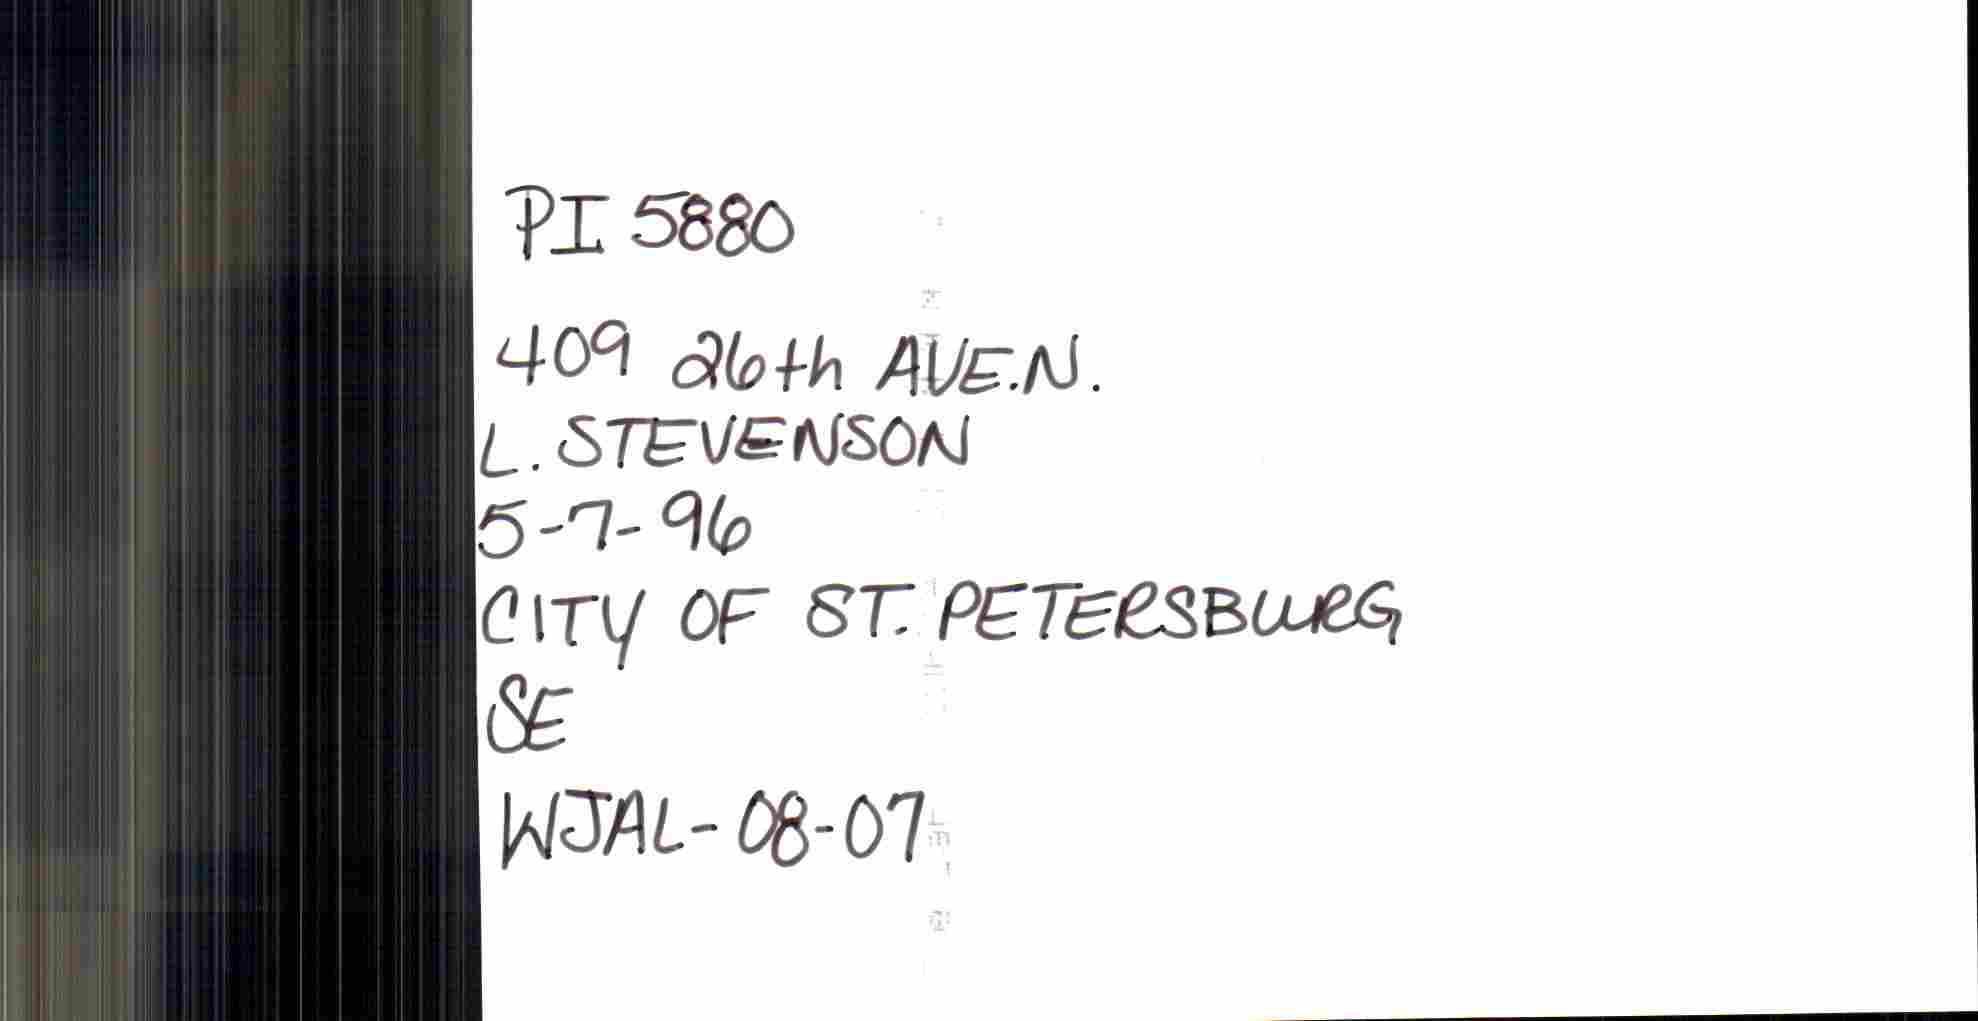 PI 5880
409 26th AVE.N.
L. STEVENSON
5-7-96
CITY OF ST. PETERSBURG
SE
WJAL-08-07